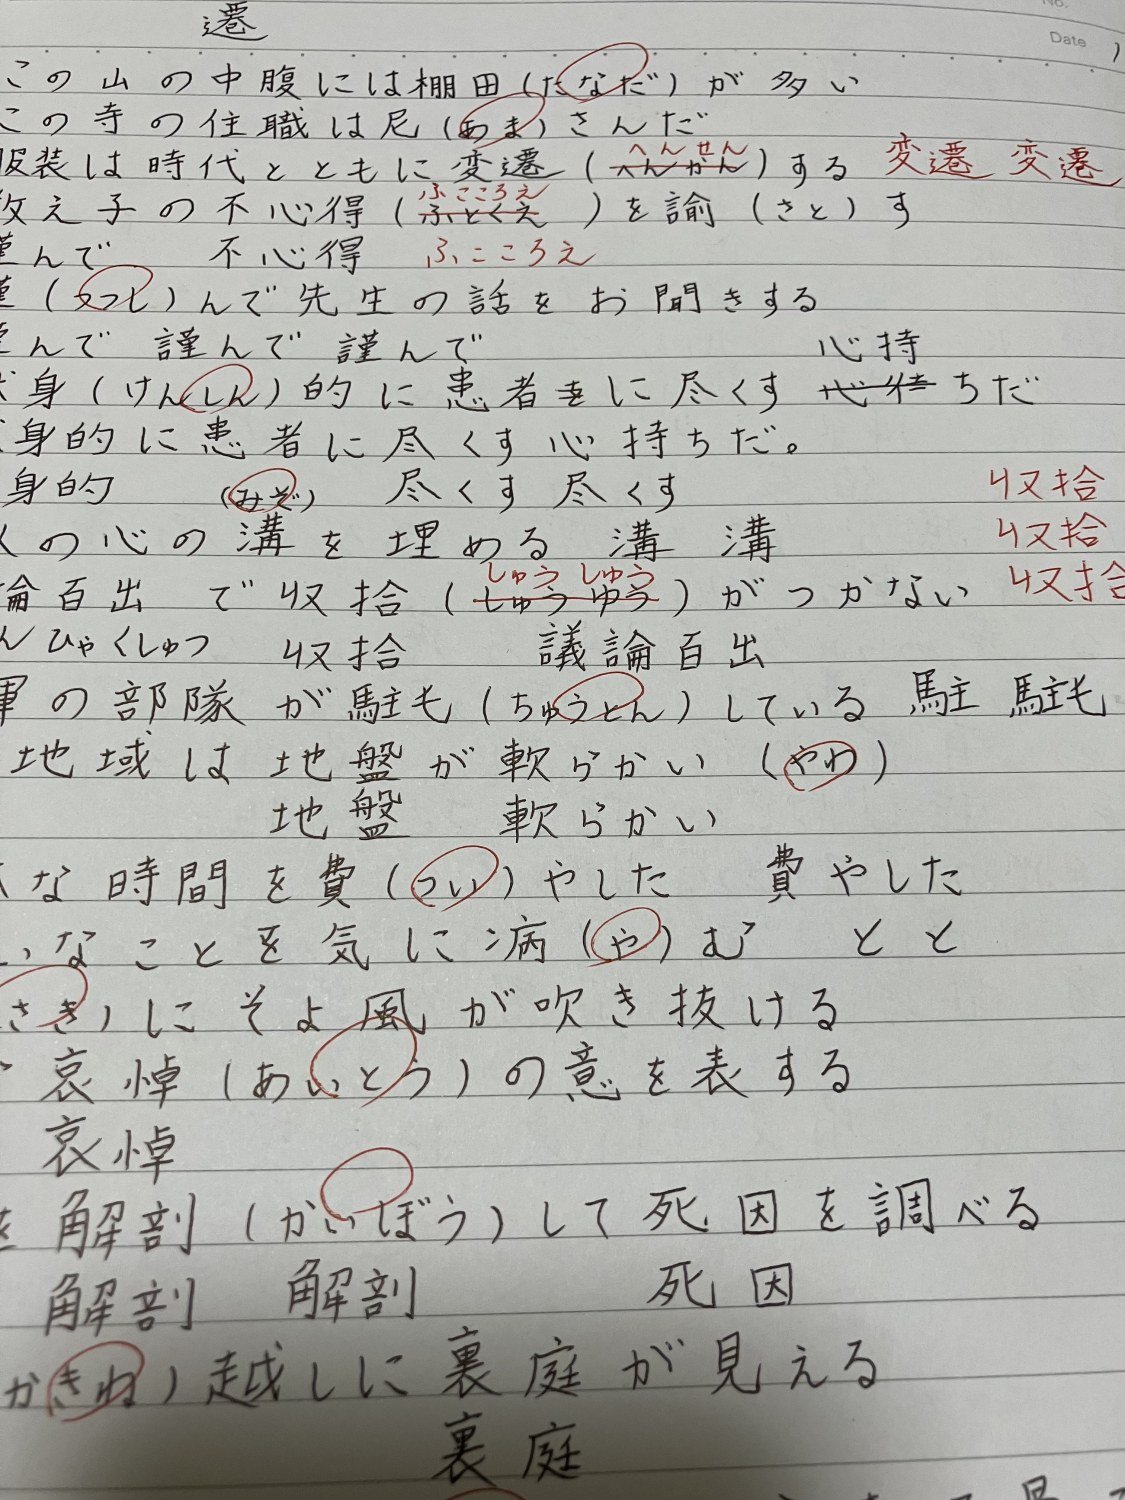 遷
No.
Date
この山の中腹には棚田(たなだ)が多い
この寺の住職は尼(あま)さんだ
服装は時代とともに変遷(へんかん)する 変遷 変遷
へんせん
教え子の不心得(ふとくえ)を諭(さと)す
ふこころえ
謹んで 不心得 ふこころえ
謹(つつし)んで先生の話をお聞きする
謹んで 謹んで 謹んで 心持
献身(けんしん)的に患者をに尽くす 心待ちだ
献身的に患者に尽くす心持ちだ。
身的 (みぞ) 尽くす 尽くす 収拾
人の心の溝を埋める 溝 溝 収拾
しゅうしゅう
論百出で収拾(しゅうゆう)がつかない 収拾
んひゃくしゅつ 収拾 議論百出
軍の部隊が駐屯(ちゅうとん)している 駐 駐屯
地域は地盤が軟らかい(やわ)
地盤 軟らかい
な時間を費(つい)やした 費やした
いなことを気に病(や)む と と
さき)にそよ風が吹き抜ける
哀悼(あいとう)の意を表する
哀悼
を解剖(かいぼう)して死因を調べる
解剖 解剖 死因
かきね)越しに裏庭が見える
裏庭